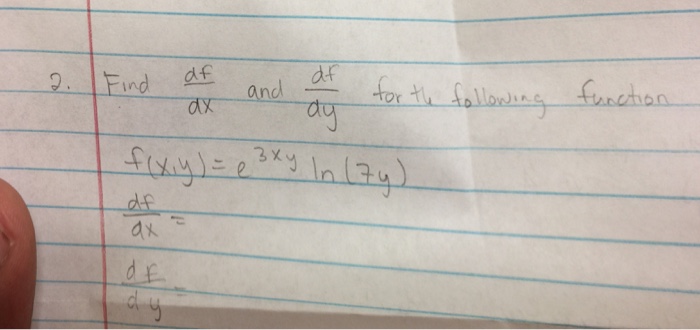 2. Find df/dx and df/dy for the following function
f(x,y) = e^{3xy} ln(7y)
df/dx =
dF/dy =